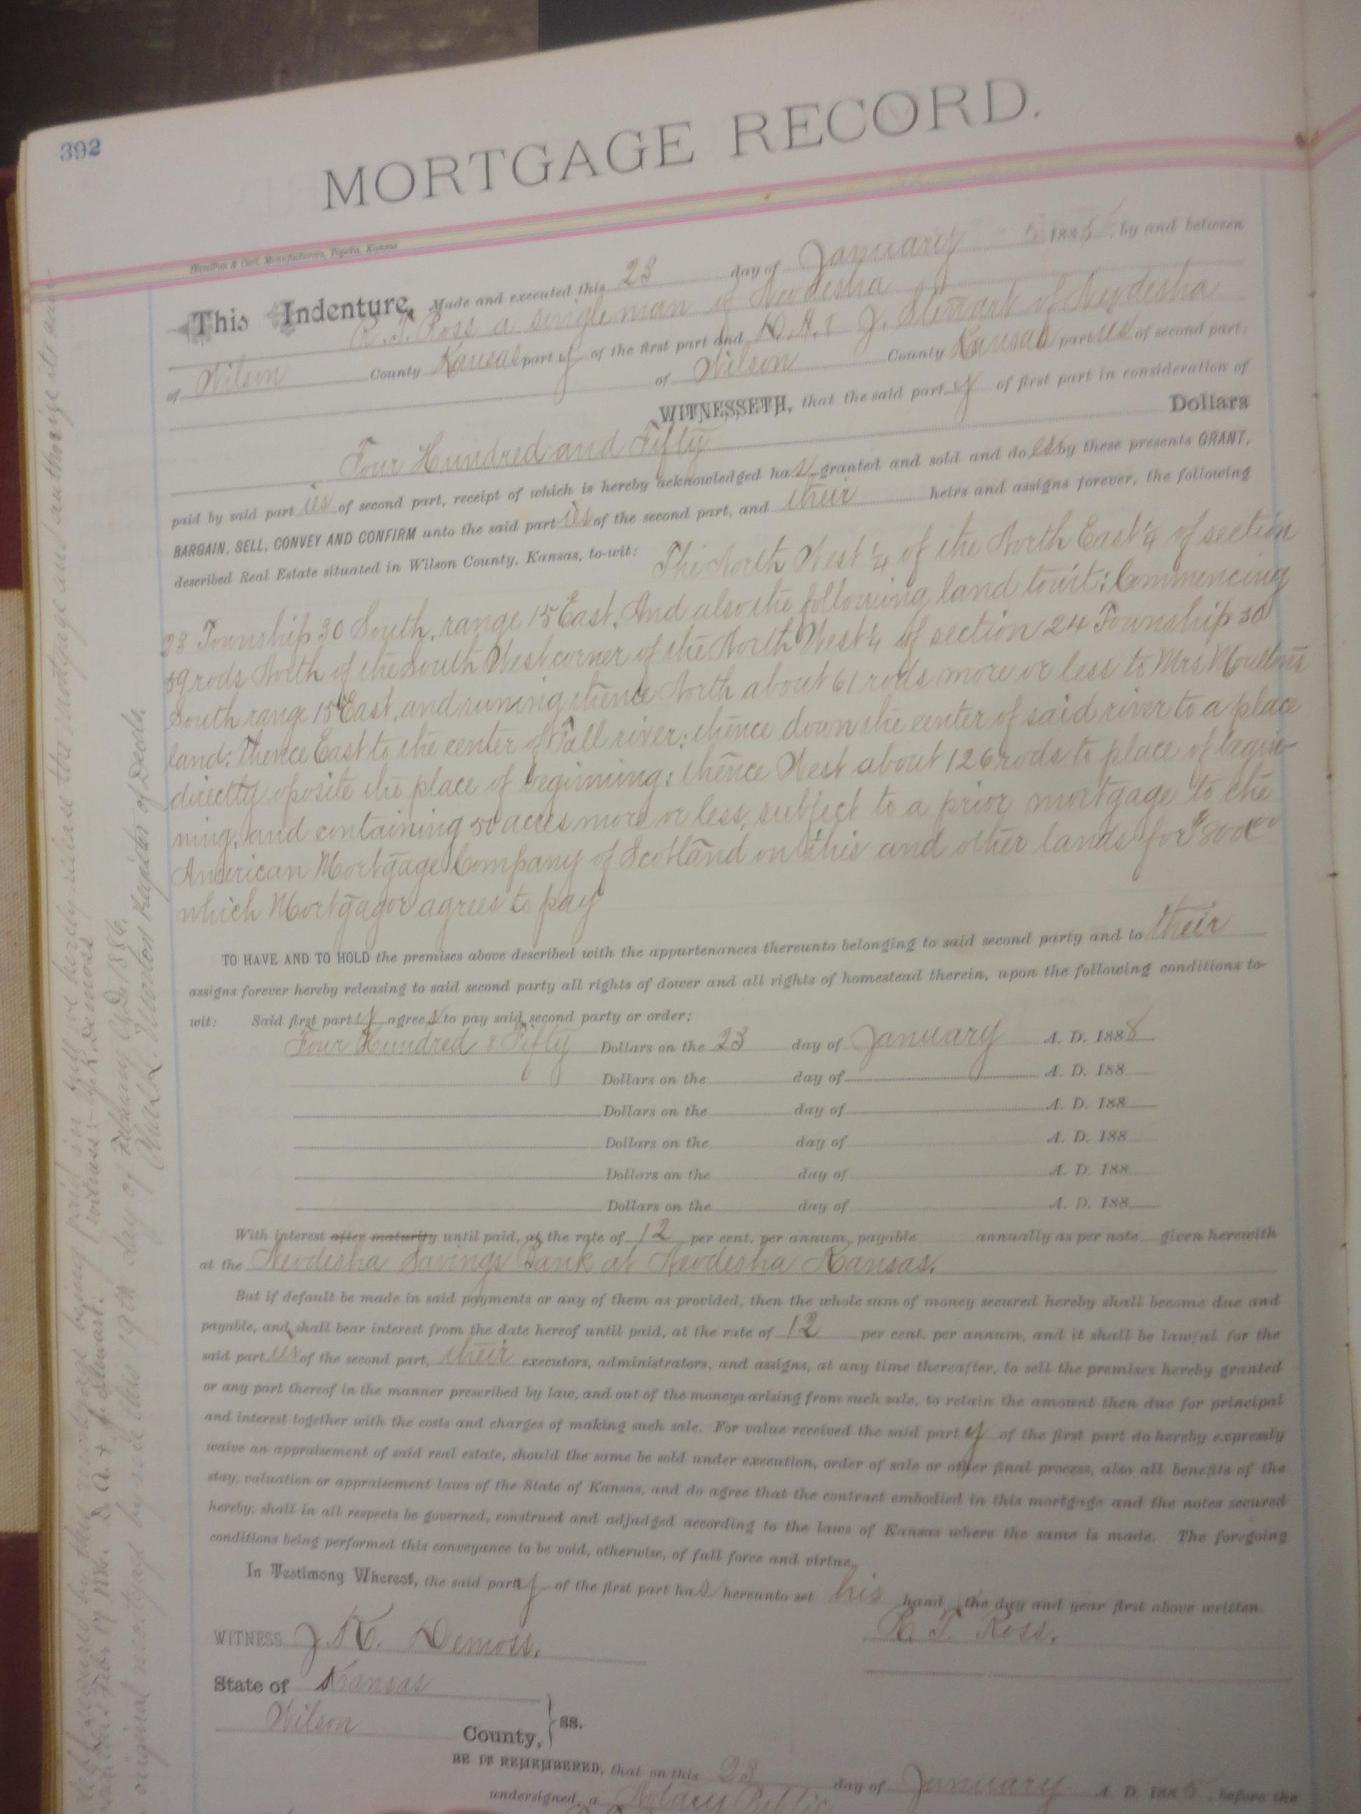 392
MORTGAGE RECORD.
Hamilton & Carl, Manufacturers, Topeka, Kansas
This Indenture, Made and executed this 23 day of January 1885, by and between
R. T. Ross a single man of Neodesha
of Wilson County Kansas part y of the first part and D. A. & J. Stewart of Neodesha
of Wilson County Kansas part ies of second part.
WITNESSETH, that the said part y of first part in consideration of
Four Hundred and Fifty Dollars
paid by said part ies of second part, receipt of which is hereby acknowledged ha s granted and sold and do es by these presents GRANT,
BARGAIN, SELL, CONVEY AND CONFIRM unto the said part ies of the second part, and their heirs and assigns forever, the following
described Real Estate situated in Wilson County, Kansas, to-wit: The North West ¼ of the North East ¼ of section
23 Township 30 South, range 15 East. And also the following land towit: Commencing
59 rods North of the South West corner of the North West ¼ of section 24 Township 30
South range 15 East, and runing thence North about 61 rods more or less to Mrs Moultons
land: thence East to the center of Fall river: thence down the center of said river to a place
directly oposite the place of beginning: thence West about 126 rods to place of begin-
ning, and containing 50 acres more or less, subject to a prior mortgage to the
American Mortgage Company of Scotland on this and other lands for $800 00
which Mortgagor agrees to pay
TO HAVE AND TO HOLD the premises above described with the appurtenances thereunto belonging to said second party and to their
assigns forever hereby releasing to said second party all rights of dower and all rights of homestead therein, upon the following conditions to-
wit: Said first part y agree s to pay said second party or order;
Four Hundred & Fifty Dollars on the 23 day of January A. D. 1888
Dollars on the day of A. D. 188
Dollars on the day of A. D. 188
Dollars on the day of A. D. 188
Dollars on the day of A. D. 188
Dollars on the day of A. D. 188
With interest after maturity until paid, at the rate of 12 per cent. per annum, payable annually as per note given herewith
at the Neodesha Savings Bank at Neodesha Kansas.
But if default be made in said payments or any of them as provided, then the whole sum of money secured hereby shall become due and
payable, and shall bear interest from the date hereof until paid, at the rate of 12 per cent. per annum, and it shall be lawful for the
said part ies of the second part, their executors, administrators, and assigns, at any time thereafter, to sell the premises hereby granted
or any part thereof in the manner prescribed by law, and out of the moneys arising from such sale, to retain the amount then due for principal
and interest together with the costs and charges of making such sale. For value received the said part y of the first part do hereby expressly
waive an appraisement of said real estate, should the same be sold under execution, order of sale or other final process, also all benefits of the
stay, valuation or appraisement laws of the State of Kansas, and do agree that the contract embodied in this mortgage and the notes secured
hereby, shall in all respects be governed, construed and adjudged according to the laws of Kansas where the same is made. The foregoing
conditions being performed this conveyance to be void, otherwise, of full force and virtue.
In Testimony Whereof, the said part y of the first part ha s hereunto set his hand the day and year first above written.
WITNESS J. K. Demoss. R. T. Ross.
State of Kansas
Wilson County, } ss.
BE IT REMEMBERED, that on this 23 day of January A. D. 1885, before the
undersigned, a Notary Public
debt secured by this mortgage being paid in full we hereby release the mortgage and authorize its
D. A. & J. Stewart. witness: J. K. Demoss
original mortgage by me this 19th day of February A. D. 1886.
Register of Deeds.